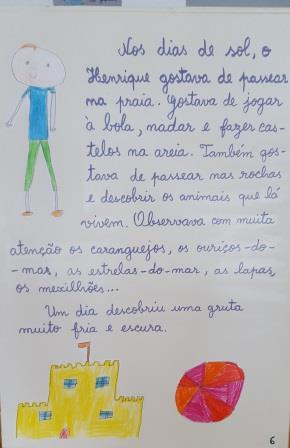 Nos dias de sol, o
Henrique gostava de passear
na praia. Gostava de jogar
à bola, nadar e fazer cas-
telos na areia. Também gos-
tava de passear nas rochas
e descobrir os animais que lá
vivem. Observava com muita
atenção os caranguejos, os ouriços-do-
-mar, as estrelas-do-mar, as lapas,
os mexilhões...
Um dia descobriu uma gruta
muito fria e escura.
6